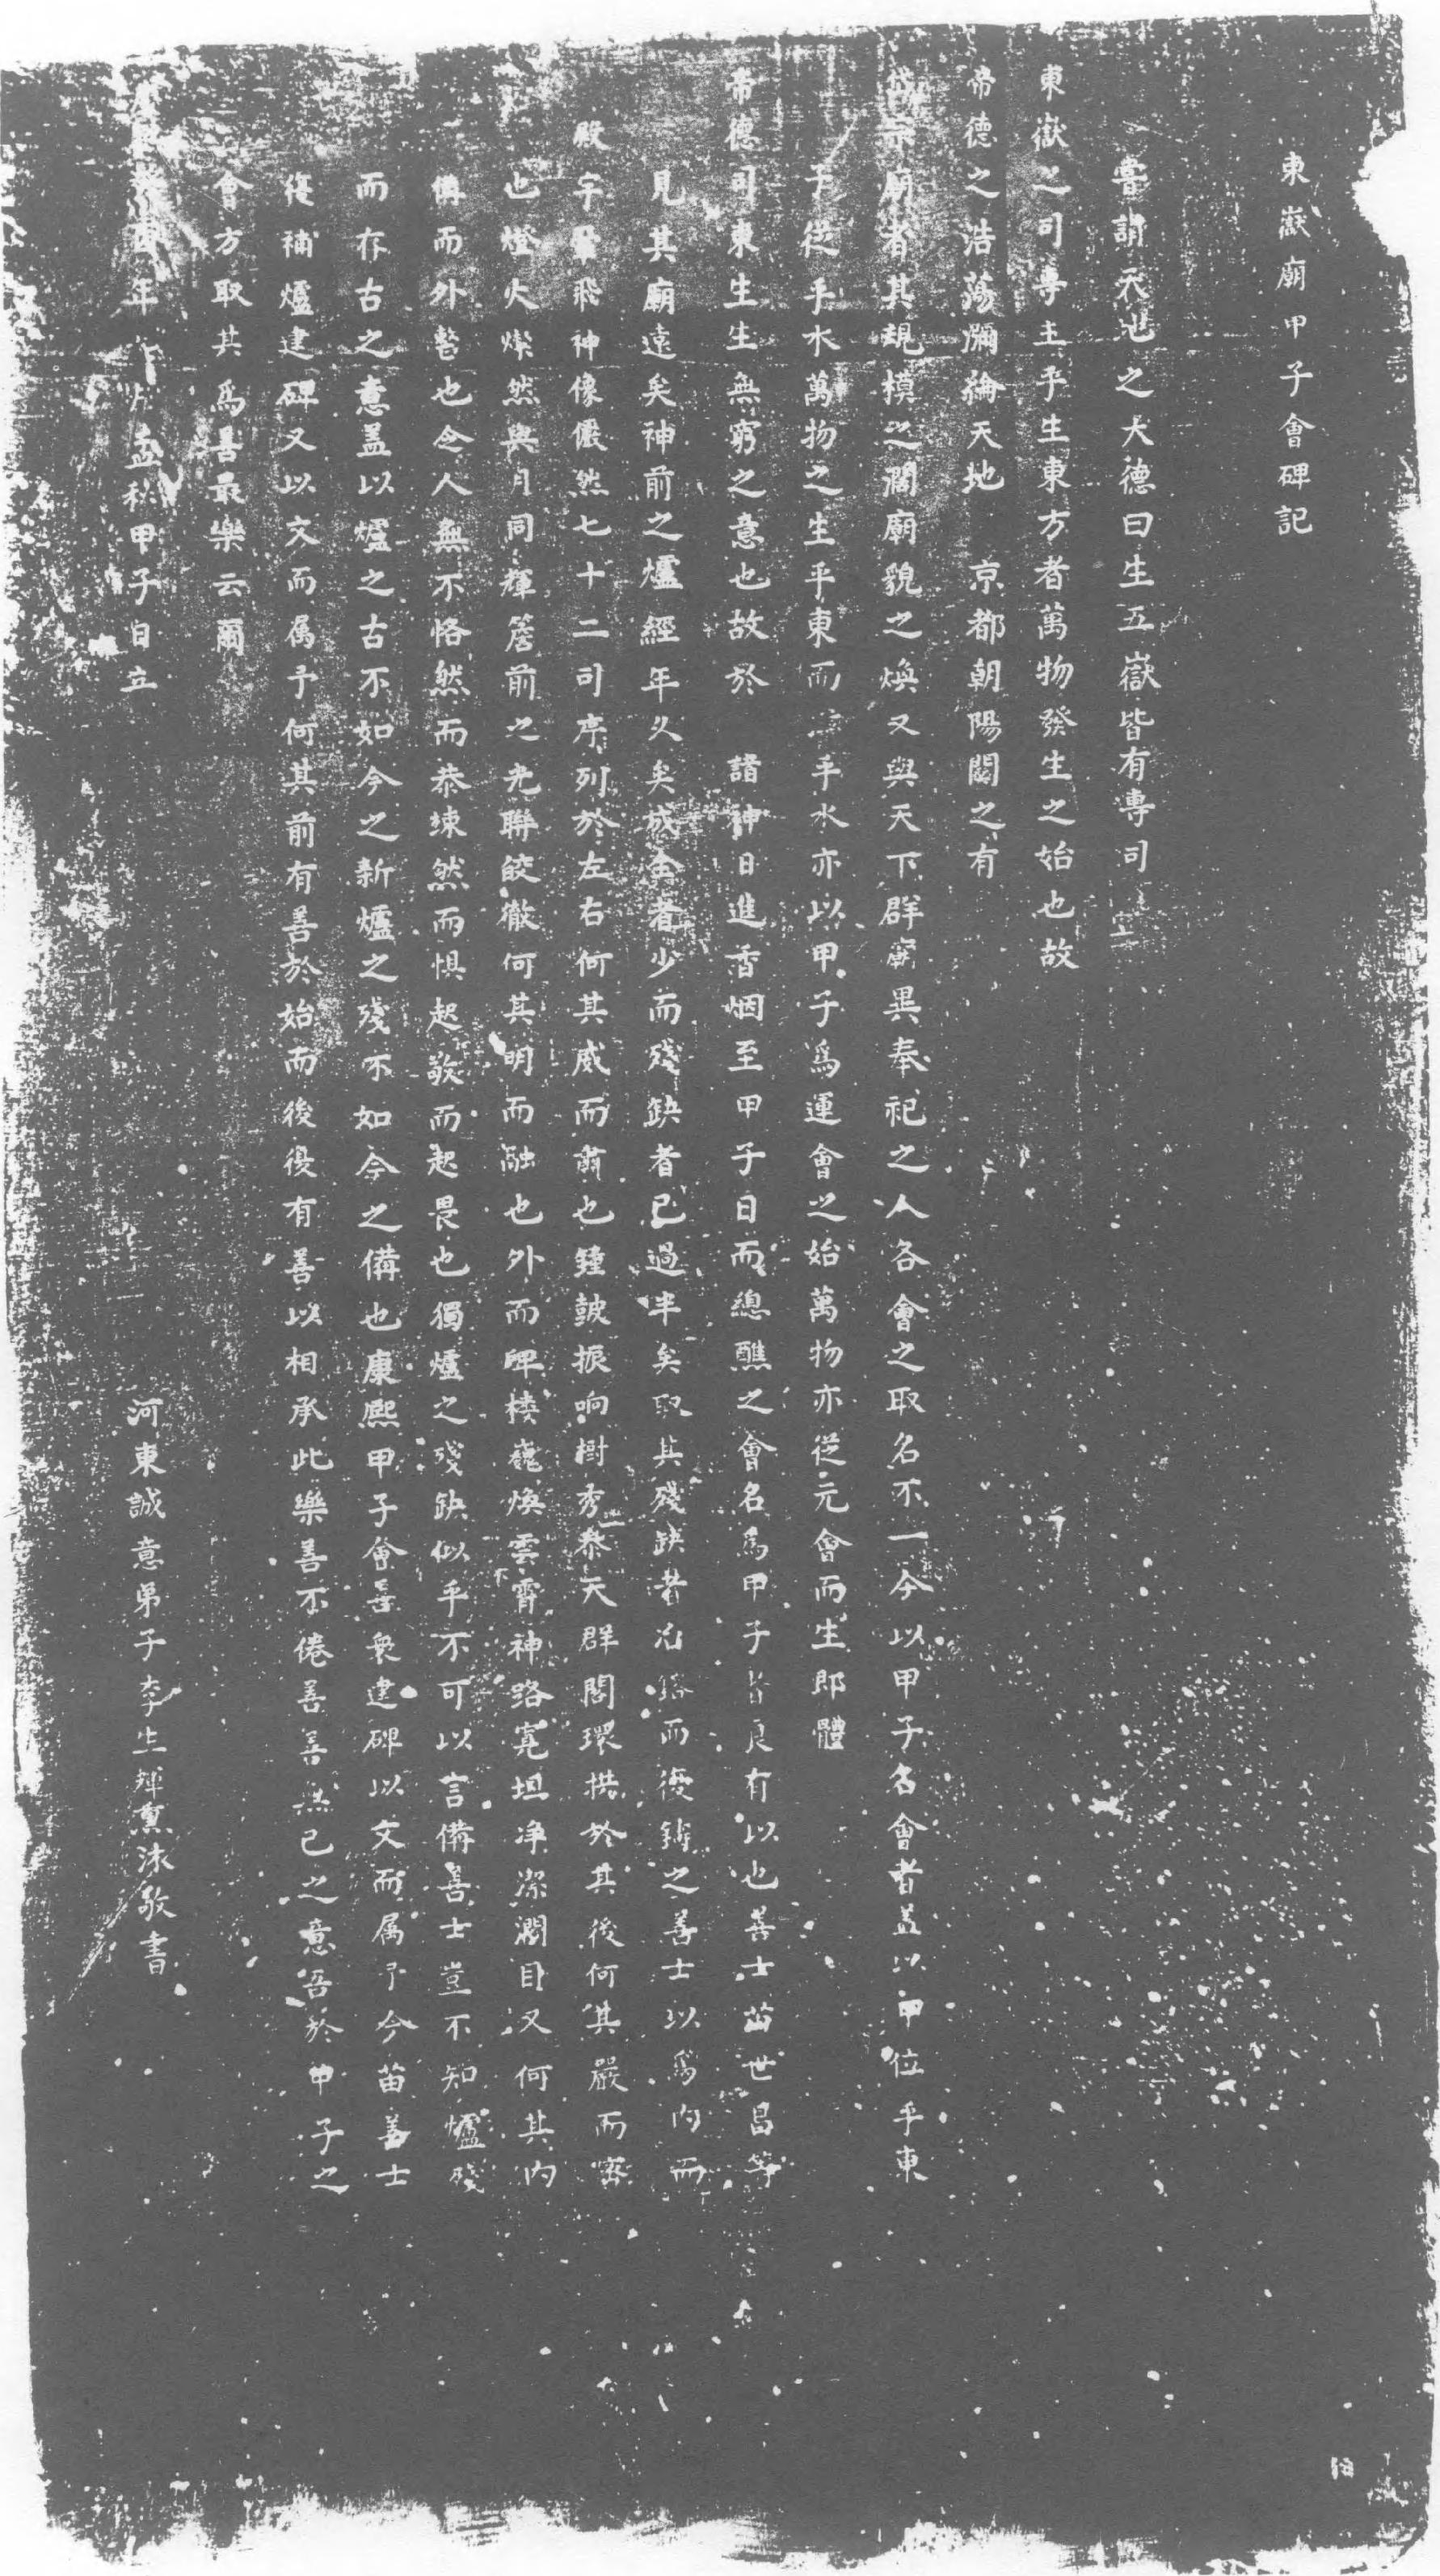 東嶽廟甲子會碑記
嘗謂天地之大德曰生五嶽皆有專司
東嶽之司專主乎生東方者萬物發生之始也故
帝德之浩蕩彌綸天地 京都朝陽關之有
岱宗廟者其規模之濶廟貌之煥又與天下群廟異奉祀之人各會之取名不一今以甲子名會者盖以甲位乎東
子從乎水萬物之生乎東而 乎水亦以甲子為運會之始萬物亦從元會而生即體
帝德司東生生無窮之意也故於 諸神日進香烟至甲子日而總醮之會名為甲子者良有以也善士苗世昌等
見其廟遠矣神前之爐經年久矣成全者少而殘缺者已過半矣取其殘缺者 而復鑄之善士以為内而
殿宇 飛神像儼然七十二司序列於左右何其威而肅也鐘鼓振响樹秀泰天群閣環拱於其後何其嚴而密
也燈火燦然與月同輝簷前之光聯皎徹何其明而融也外而碑樓巍煥雲霄神路寬坦净潔濶目又何其内
偹而外整也令人無不恪然而恭竦然而惧起敬而起畏也獨爐之殘缺似乎不可以言備善士豈不知爐殘
而存古之意盖以爐之古不如今之新爐之殘不如今之備也康熙甲子會善衆建碑以文而属予今苗善士
復補爐建碑又以文而属予何其前有善於始而後復有善以相承此樂善不倦善善無已之意吾於甲子之
會方取其為善最樂云爾
年 月孟秋甲子日立 河東誠意弟子李生輝薰沐敬書